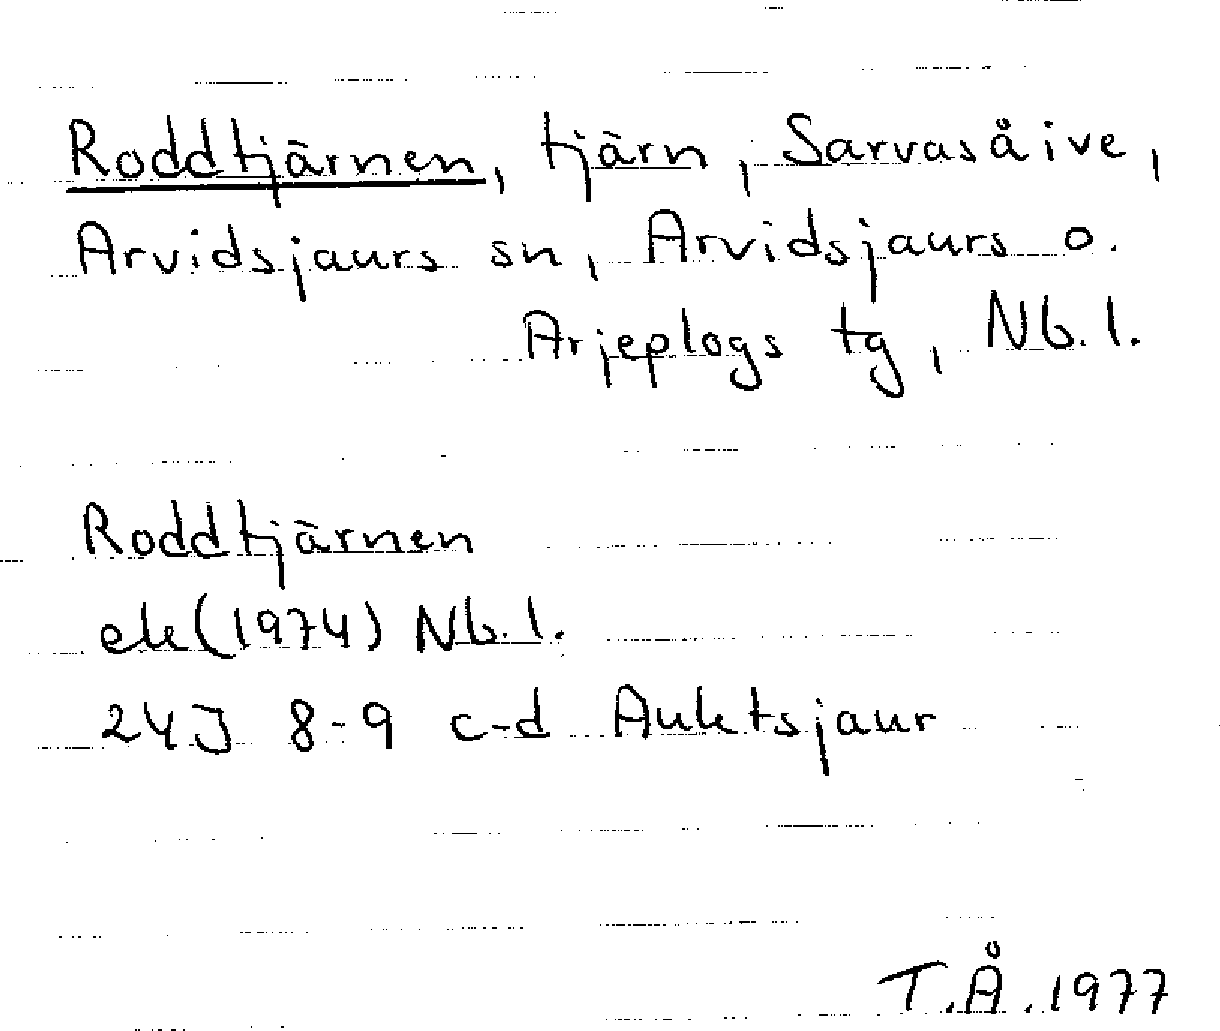 Roddtjärnen, tjärn, Sarvasåive,
Arvidsjaurs sn, Arvidsjaurs o.
Arjeplogs tg, Nb. l.
Roddtjärnen
ek (1974) Nb. l.
24J 8-9 c-d Auktsjaur
T.Å. 1977